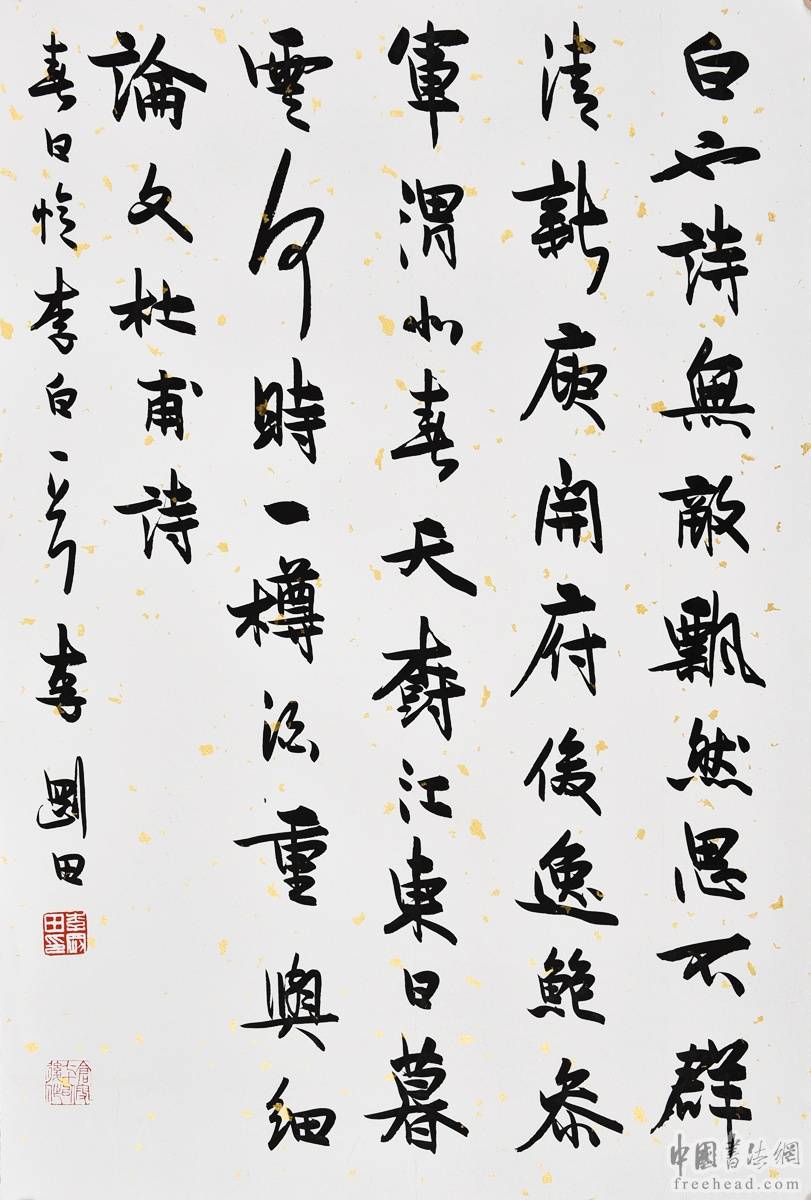 白也詩無敵飄然思不群
清新庾開府俊逸鮑參
軍渭北春天樹江東日暮
雲何時一樽酒重與細
論文杜甫詩
春日憶李白一首李剛田
李剛田印
中國書法網
freehead.com